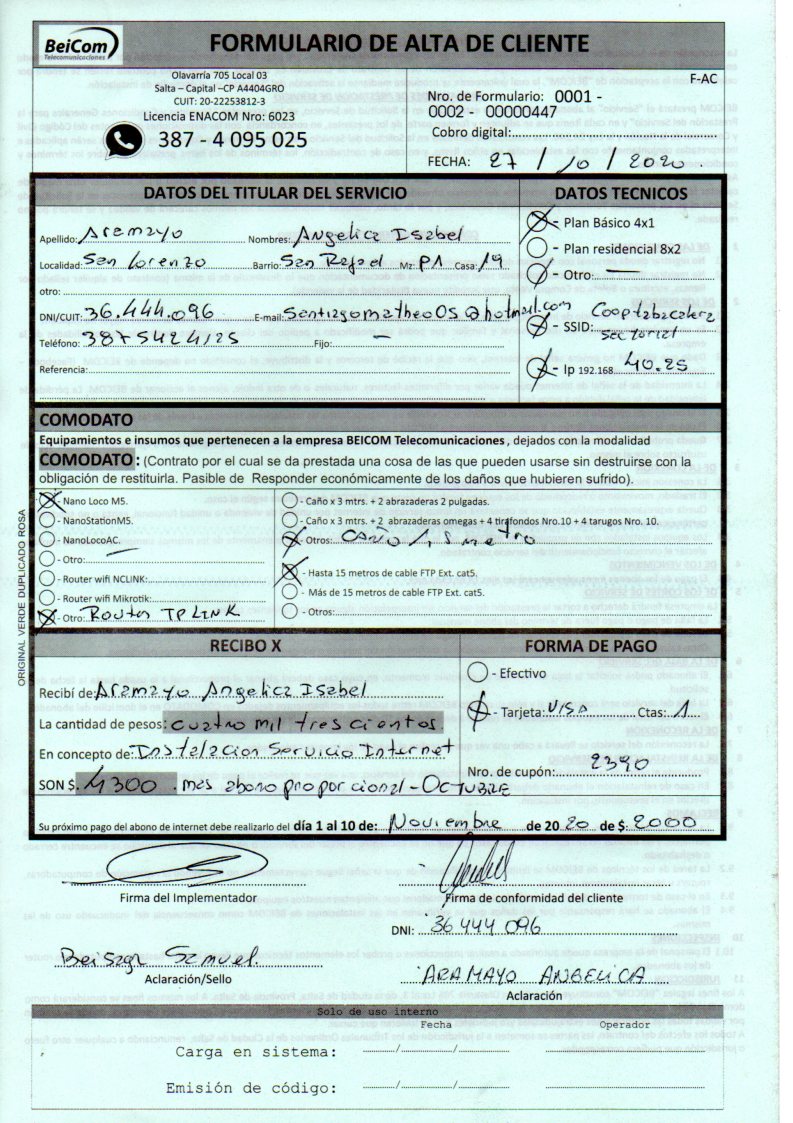 BeiCom
Telecomunicaciones
FORMULARIO DE ALTA DE CLIENTE
Olavarría 705 Local 03
Salta – Capital –CP A4404GRO
CUIT: 20-22253812-3
Licencia ENACOM Nro: 6023
387 - 4 095 025
F-AC
Nro. de Formulario: 0001 -
0002 - 00000447
Cobro digital:
FECHA: 27 / 10 / 2020
DATOS DEL TITULAR DEL SERVICIO
Apellido: Aramayo Nombres: Angelica Isabel
Localidad: San Lorenzo Barrio: San Rafael Mz: P1 Casa: 19
otro:
DNI/CUIT: 36.444.096 E-mail: Santiagomatheo05@hotmail.com
Teléfono: 3875424125 Fijo: —
Referencia:
DATOS TECNICOS
- Plan Básico 4x1
- Plan residencial 8x2
- Otro: —
- SSID: Cooptabacalera
Sectorial
- Ip 192.168. 40.25
COMODATO
Equipamientos e insumos que pertenecen a la empresa BEICOM Telecomunicaciones , dejados con la modalidad
COMODATO : (Contrato por el cual se da prestada una cosa de las que pueden usarse sin destruirse con la
obligación de restituirla. Pasible de Responder económicamente de los daños que hubieren sufrido).
- Nano Loco M5.
- NanoStationM5.
- NanoLocoAC.
- Otro: —
- Router wifi NCLINK:
- Router wifi Mikrotik:
- Otro: Router TP LINK
- Caño x 3 mtrs. + 2 abrazaderas 2 pulgadas.
- Caño x 3 mtrs. + 2 abrazaderas omegas + 4 tirafondos Nro.10 + 4 tarugos Nro. 10.
Otros: caño 1,5 metro
- Hasta 15 metros de cable FTP Ext. cat5.
- Más de 15 metros de cable FTP Ext. cat5.
- Otros:
ORIGINAL VERDE DUPLICADO ROSA
RECIBO X
Recibí de: Aramayo Angelica Isabel
La cantidad de pesos: cuatro mil trescientos.
En concepto de: Instalacion Servicio Internet
SON $. 4300 . mes abono proporcional - OCTUBRE
FORMA DE PAGO
- Efectivo
- Tarjeta: VISA Ctas: 1
Nro. de cupón: 2390
Su próximo pago del abono de internet debe realizarlo del día 1 al 10 de: Noviembre de 2020 de $: 2000
Firma del Implementador
Firma de conformidad del cliente
DNI: 36 444 096
Beisaga Samuel.
Aclaración/Sello
ARAMAYO ANGELICA
Aclaración
Solo de uso interno
Fecha Operador
Carga en sistema: / /
Emisión de código: / /